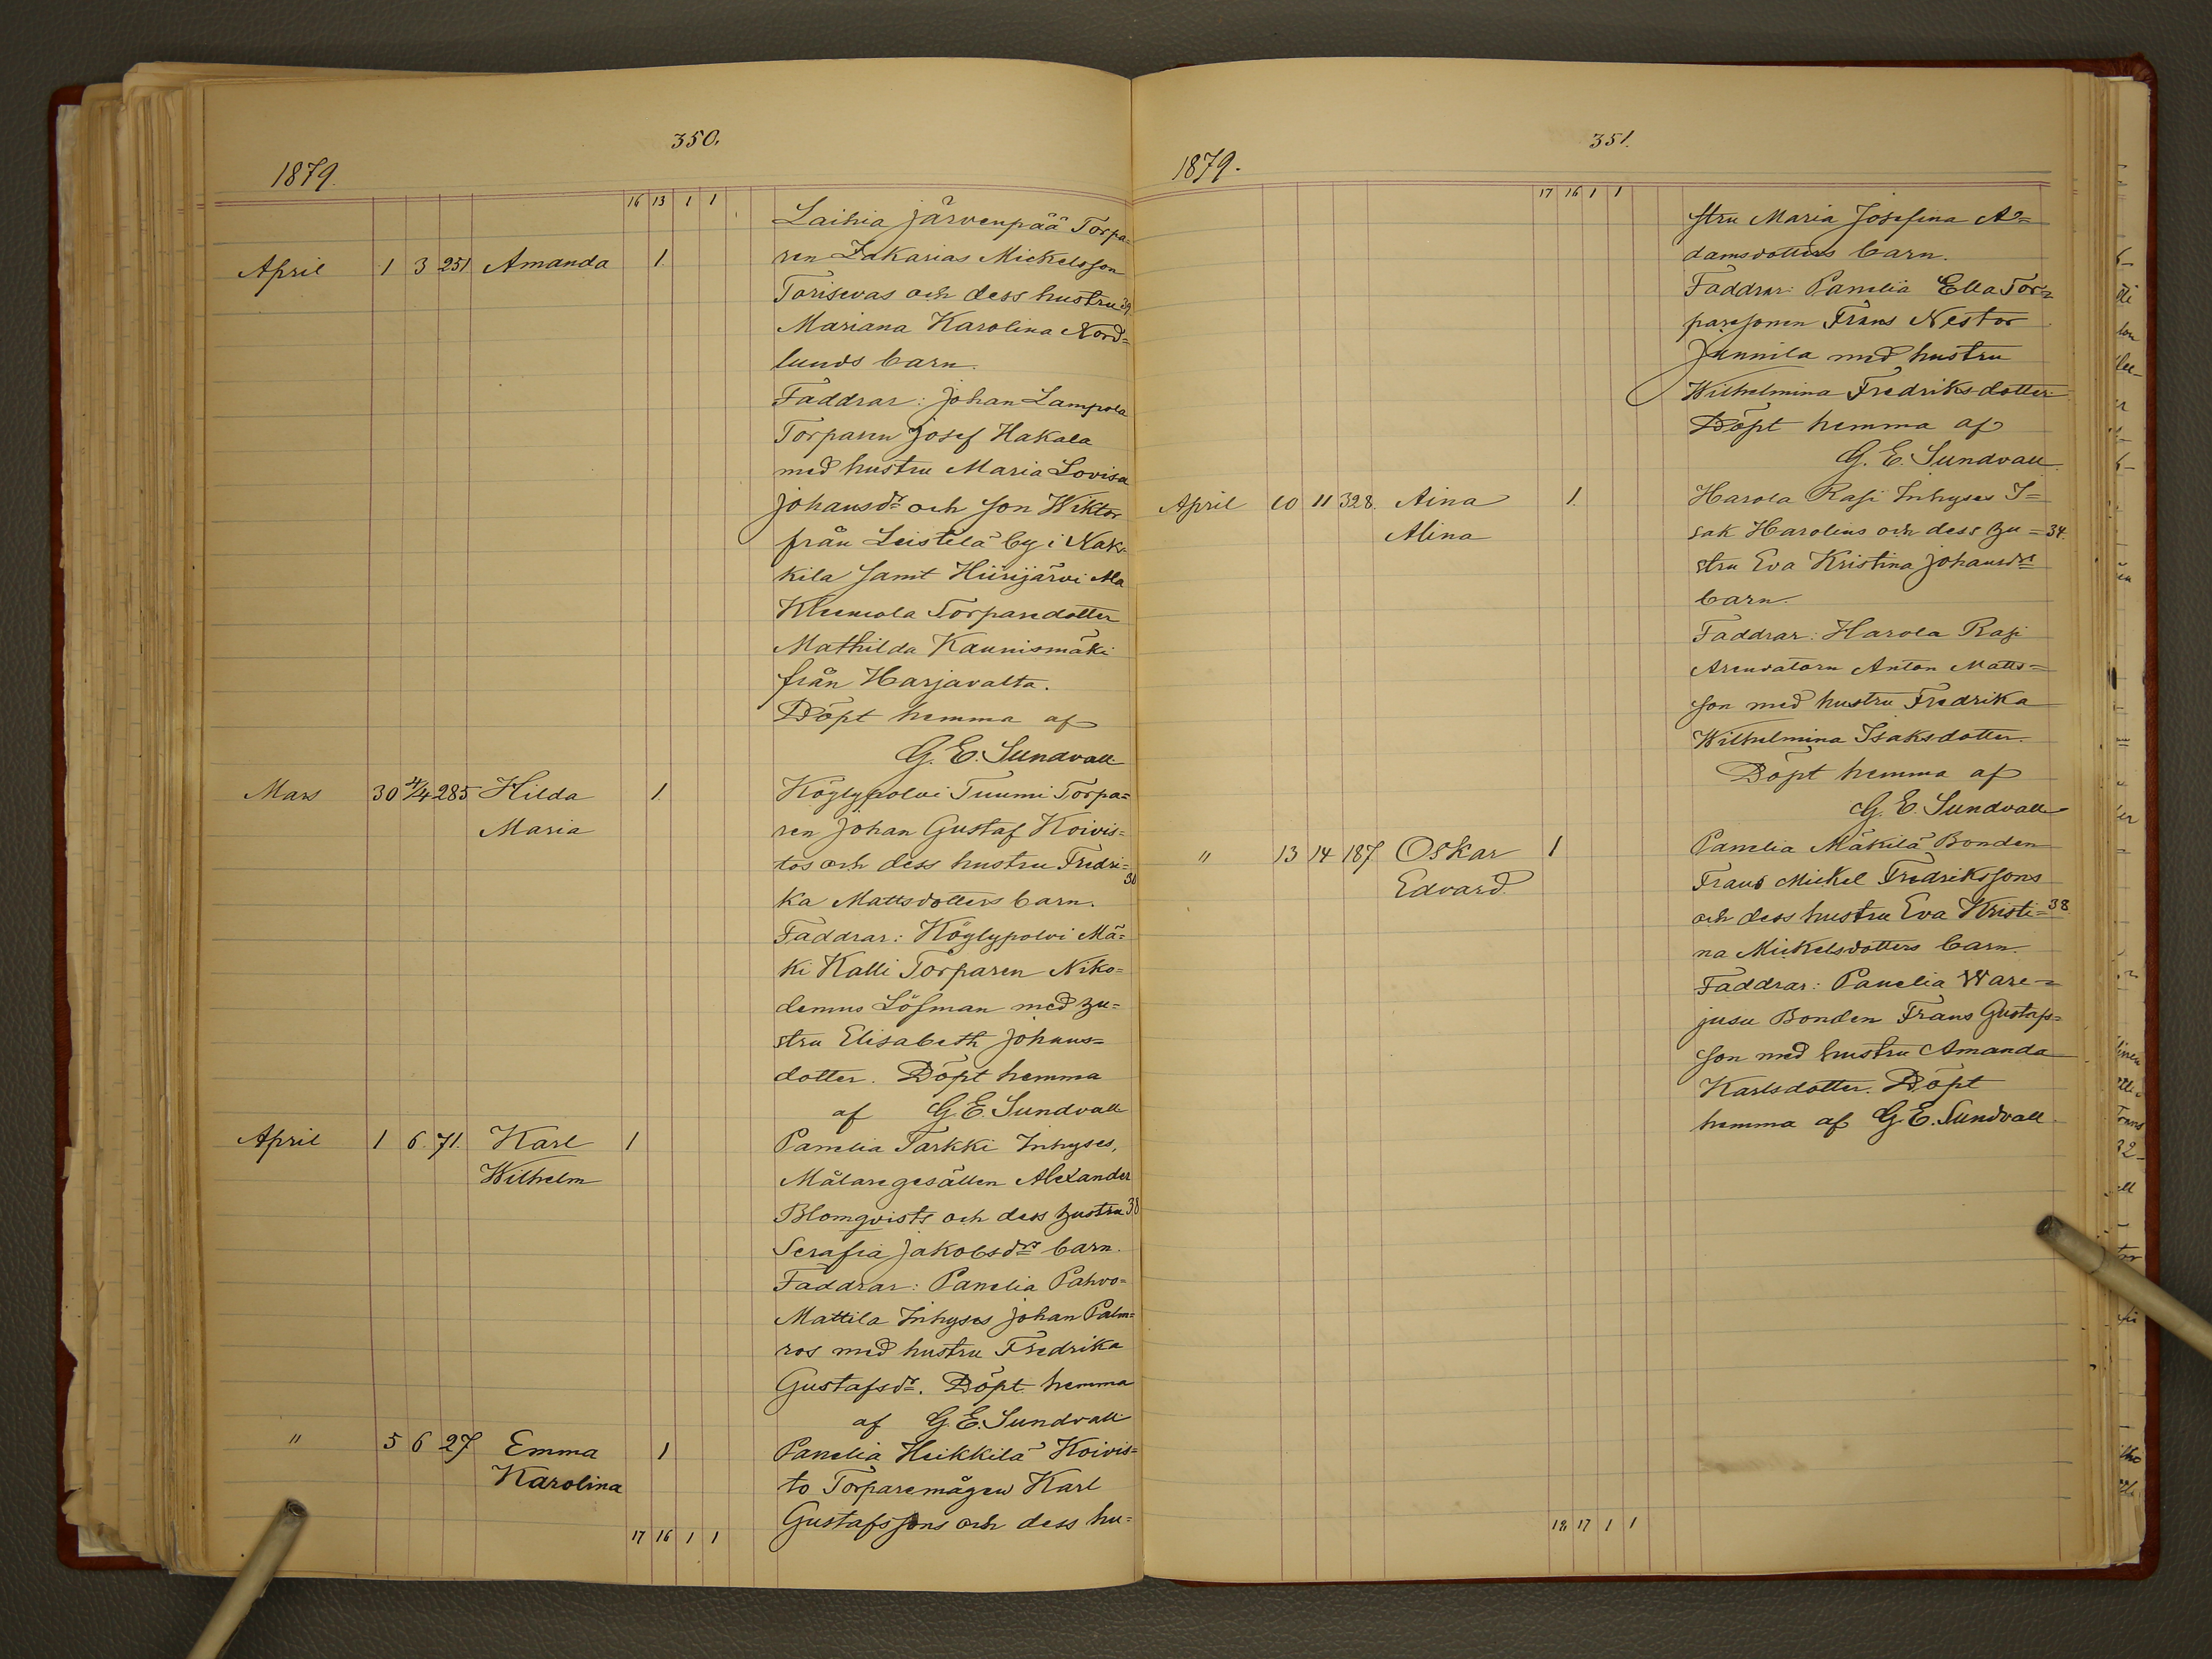 350.
1879.
16 13 1 1
Laihia Järvenpää Torpa=
April 1 3 251 Amanda 1. ren Zakarias Mickelsson
Torisevas och dess hustru 39
Mariana Karolina Nord=
lunds barn.
Faddrar: Johan Lampola
Torparen Josef Hakala
med hustru Maria Lovisa
Johansdr och son Wiktor
från Leistelä by i Nak=
kila samt Hiirijärvi Ala
Kleemola Torparedotter
Mathilda Kaunismäki
från Harjavalta.
Döpt hemma af
G. E. Sundvall
Mars 30 4/4 285 Hilda 1. Köylypolvi Tuumi Torpa=
Maria ren Johan Gustaf Koivis=
tos och dess hustru Fredri=
30
ka Mattsdotters barn.
Faddrar: Köylypolvi Mä=
ki Kalli Torparen Niko=
demus Löfman med hu=
stru Elisabeth Johans=
dotter. Döpt hemma
af G. E. Sundvall
April 1 6. 71. Karl 1 Panelia Tarkki Inhyses,
Wilhelm Målaregesällen Alexander
Blomqvists och dess hustru 38
Serafia Jakobsdrs barn.
Faddrar: Panelia Pahvo=
Mattila Inhyses Johan Palm=
ros med hustru Fredrika
Gustafsdr. Döpt hemma
af G. E. Sundvall
" 5 6 27 Emma 1 Panelia Heikkilä Koivis=
Karolina to Torparemågen Karl
Gustafssons och dess hu=
17 16 1 1
351.
1879.
17 16 1 1
stru Maria Josefina A=
damsdotters barn.
Faddrar: Panelia Ella Tor=
paresonen Frans Nestor
Junnila med hustru
Wilhelmina Fredriksdotter
Döpt hemma af
G. E. Sundvall.
April 10 11 328. Aina 1. Harola Rasi Inhyses I=
Alina sak Harolins och dess hu= 34.
stru Eva Kristina Johansdrs
barn.
Faddrar: Harola Rasi
Arendatorn Anton Matts=
son med hustru Fredrika
Wilhelmina Isaksdotter.
Döpt hemma af
G. E. Sundvall
" 13 14 187 Oskar 1 Panelia Mäkilä Bonden
Edvard. Frans Mickel Fredrikssons
och dess hustru Eva Kristi= 38
na Mickelsdotters barn.
Faddrar: Panelia Ware=
jusu Bonden Frans Gustafs=
son med hustru Amanda
Karlsdotter. Döpt
hemma af G. E. Sundvall.
18 17 1 1